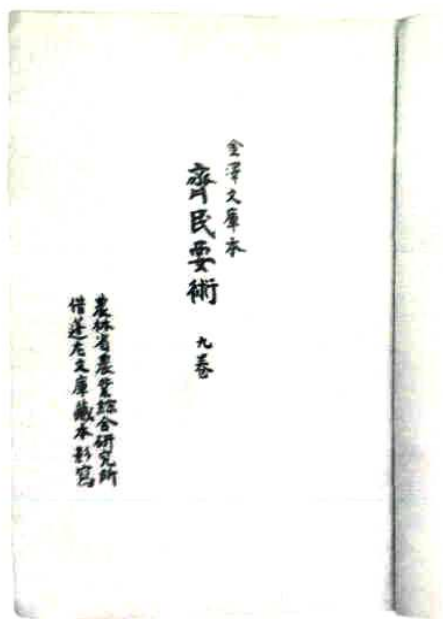 金澤文庫本
齊民要術 九卷
農林省農業綜合研究所
借蓬左文庫藏本影寫